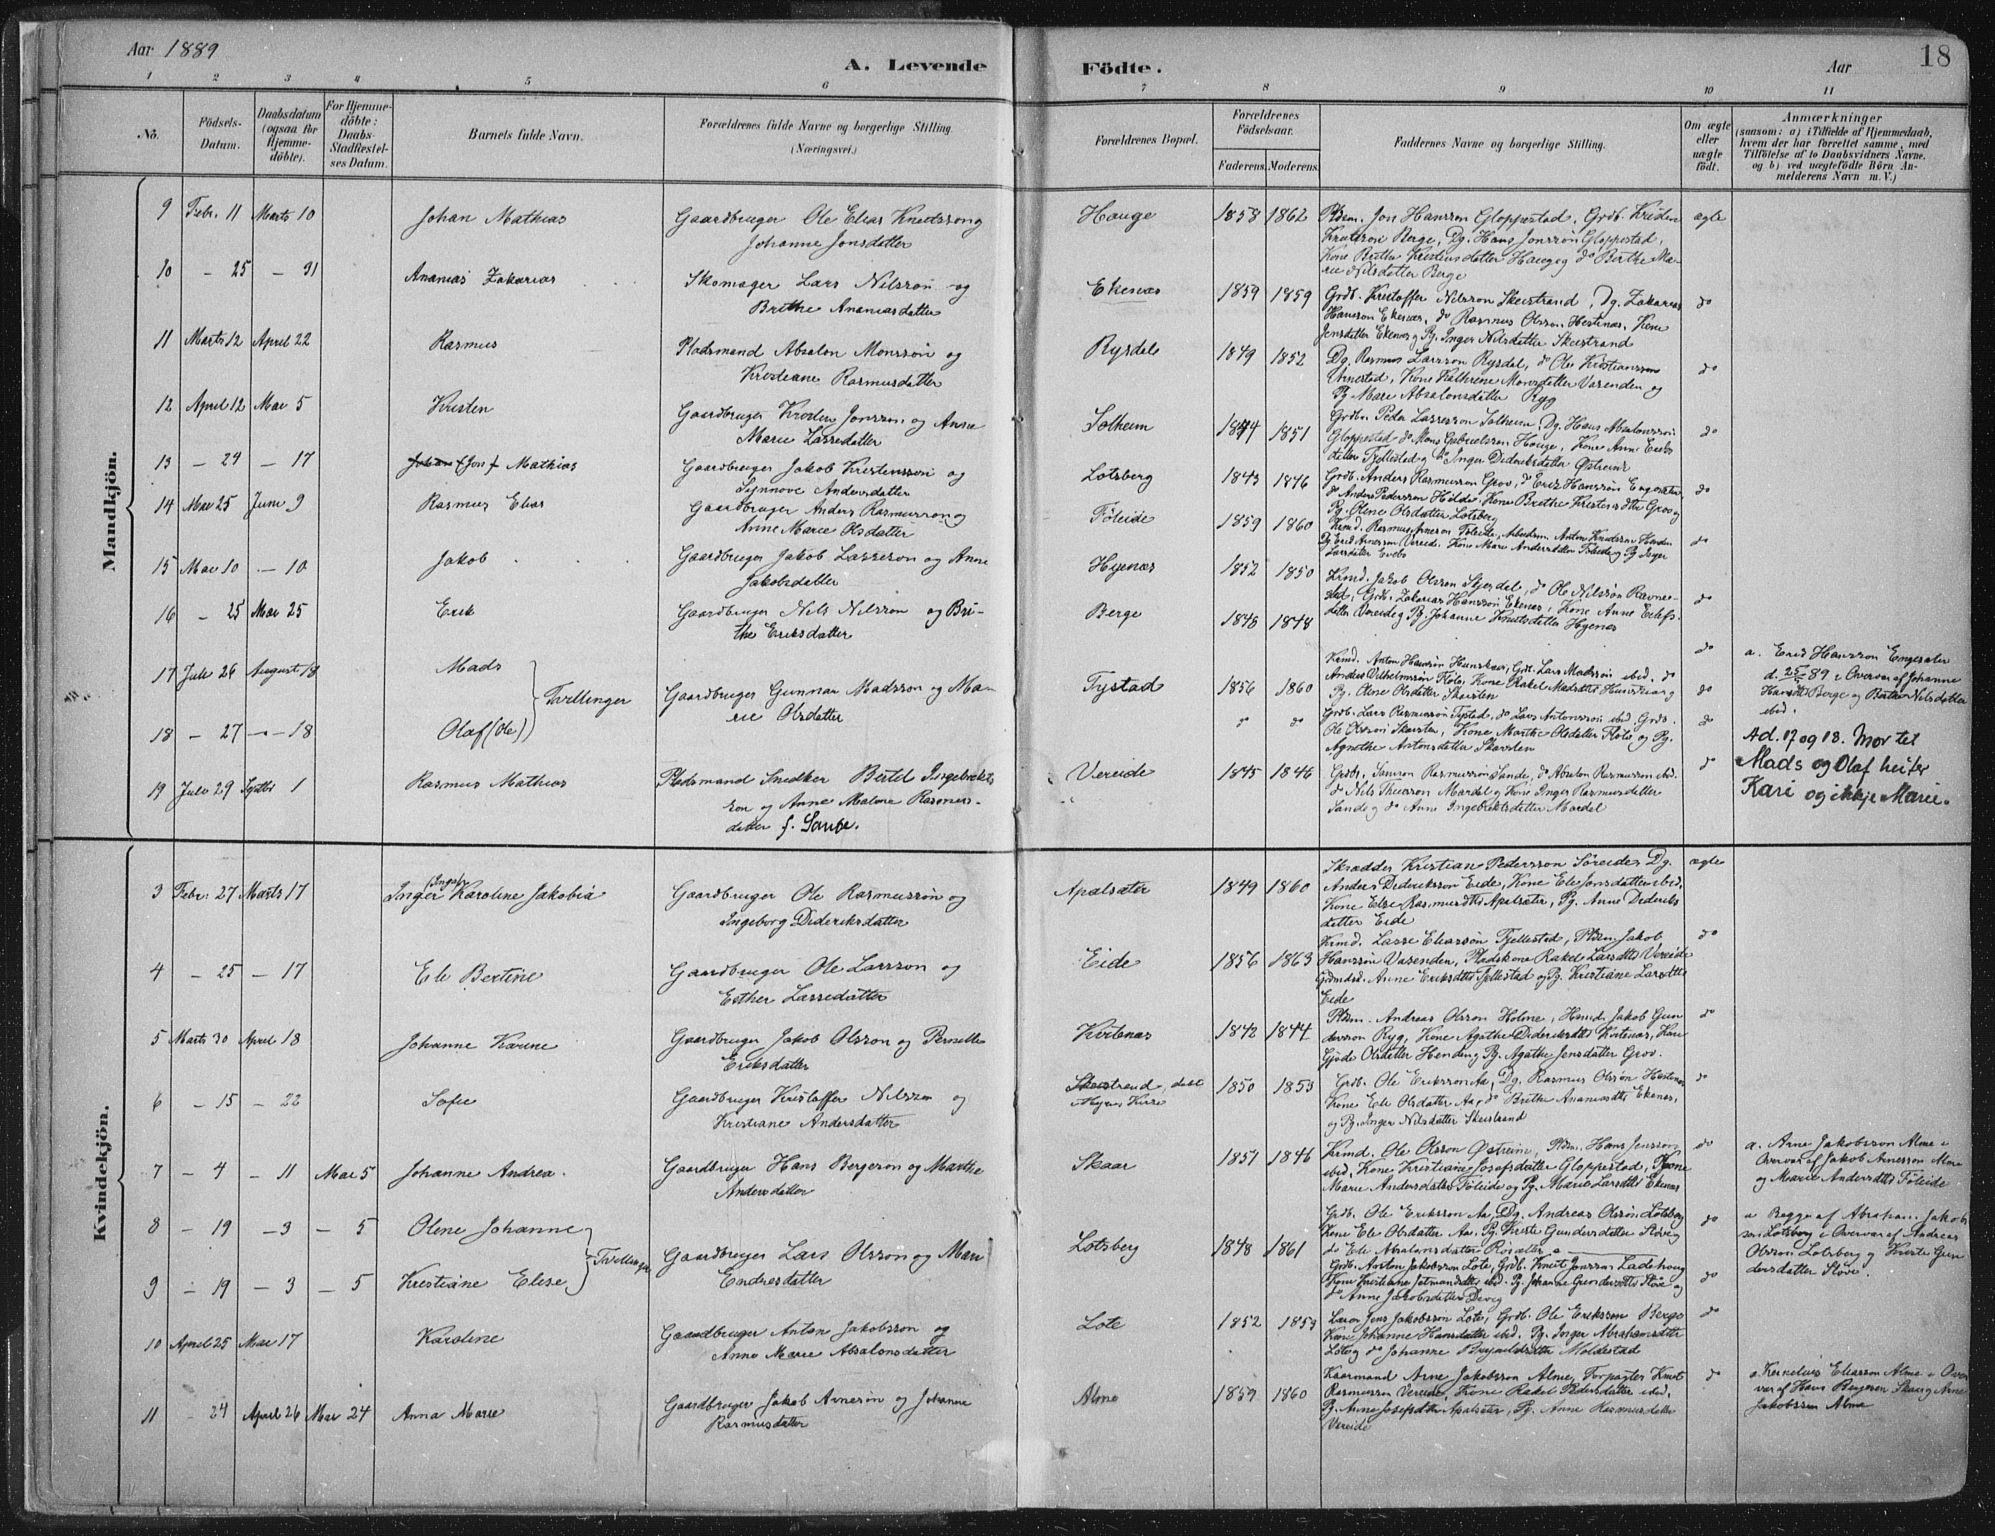 Aar 1889
A. Levende Födte.
Aar 18
1 2 3 4 5 6 7 8 9 10 11
No.
Födsels-Datum.
Daabsdatum (ogsaa for Hjemme-döbte).
For Hjemme-döbte: Daabs-Stadfæstel-ses Datum.
Barnets fulde Navn.
Forældrenes fulde Navne og borgerlige Stilling.
(Næringsvei.)
Forældrenes Bopæl.
Forældrenes Födselsaar.
Faderens. Moderens.
Faddernes Navne og borgerlige Stilling.
Om ægte eller uægte födt.
Anmærkninger
(saasom: a) i Tilfælde af Hjemmedaab,
hvem der har forrettet samme, med
Tilföielse af to Daabsvidners Navne.
og b) ved uægtefödte Börn An-
melderens Navn m. V.)
Mandkjön.
9 Febr. 11 Marts 10 Johan Mathias Gaardbruger Ole Elias Knutsson og
Johanne Jonsdatter
Hauge 1858 1862 Pldsm. Jon Hansson Gloppestad, Grdb. Kristen ægte
Knutsson Berge, Dg. Hans Jonsson Gloppestad,
Kone Brithe Kristensdatter Hauge og do Birthe Ma-
rie Nilsdatter Berge
10 - 25 - 31 Ananias Zakarias Skomager Lars Nilsson og
Brithe Ananiasdatter
Ekenæs 1859 1859 Grdb. Kristoffer Nilsson Skeistrand, Dg. Zakarias do
Hansson Ekenæs, do Rasmus Olsson Hestenæs, Kone
Jensdatter Ekenæs og Pg. Inger Nilsdatter Skeistrand
11 Marts 12 April 22 Rasmus Pladsmand Absalon Monsson og
Kristiane Rasmusdatter
Rysdale 1849 1852 Dg. Rasmus Larsson Rysdal, do Ole Kristiansson do
Arnestad, Kone Kathrene Monsdatter Vasenden og
Pg. Mari Absalonsdatter Ryg
12 April 12 Mai 5 Kristen Gaardbruger Kristen Jonsson og Anne
Marie Lassedatter
Solheim 1844 1851 Grdbr. Peder Lassesson Solheim, Dg. Hans Absalonsson do
Gloppestad do Mons Gabrielsson Hauge, Kone Anne Eriks-
datter Fjellestad og do Inger Dideriksdatter Østreim
13 - 29 - 17 Johan (Jon) Mathias Gaardbruger Jakob Kristensson og
Synnøve Andersdatter
Lotsberg 1843 1846 Grdb. Anders Rasmusson Grov, do Erik Hansson Engesæter, do
do Anders Pedersson Hilde, Kone Brithe Kristensdtr Grov og
Pg. Olene Olsdatter Lotsberg
14 Mai 25 Juni 9 Rasmus Elias Gaardbruger Anders Rasmusson og
Anne Marie Olsdatter
Føleide 1859 1860 Krmd. Rasmus Arnesson Føleide, Arbeidsm. Anton Knudsson do
Pg. Erik Arnesson Vereide. Kone Mari Andersdatter Føleide og Pg. Inger
Larsdatter Evebø
15 Mai 10 - 10 Jakob Gaardbruger Jakob Lassesson og Anne
Jakobsdatter
Hyenæs 1852 1850 Krmd. Jakob Olsson Skjerdal, do Ole Nilsson Ravne- do
stad, Grdb. Zakarias Hansson Ekenæs, Kone Anne Eilefs-
datter Vereide og Pg. Johanne Knutsdatter Hyenæs
16 - 25 Mai 25 Erik Gaardbruger Nils Nilsson og Bri-
the Eriksdatter
Berge 1848 1848 do
a. Erik Hansson Engesæter
d. 25/5 89 i Overvær af Johanne
Hansdtr Berge og Brithe Nilsdatter
ibid.
17 Juli 26 August 18 Mads
Tvillinger
Gaardbruger Gunnar Madsson og Ma-
rie Olsdatter
Tystad 1856 1860 Krmd. Anton Hansson Hunskaar, Grdb. Lars Madsson ibid, do do
Anders Vilhelmsson Flote, Kone Rakel Madsdtr Hunskaar og
Pg. Olene Olsdatter Skarsten
18 - 27 - 18 Olaf (Ole)
do do Grdb. Lars Rasmusson Tystad, do Lars Antonsson ibid, Grdb. do
Ole Olsson Skarsten, Kone Marthe Olsdatter Flote og Pg.
Agnethe Antonsdatter Skarsten
Ad. 17 og 18. Mor til
Mads og Olaf heiter
Kari og ikkje Marie.
19 Juli 29 Septbr 1 Rasmus Mathias Pladsmand Snedker Bertel Ingebrikts-
son og Anne Malene Rasmus-
datter f. Sande.
Vereide 1845 1846 Grdb. Samson Rasmusson Sande, do Absalon Rasmusson ibid. do
do Nils Thuesson Mardal og Kone Inger Rasmusdatter
Sande og do Anne Ingebriktsdatter Mardal
Kvindekjön.
3 Febr. 27 Marts 17 Inger (Inga) Karoline Jakobia Gaardbruger Ole Rasmusson og
Ingeborg Dideriksdatter
Apalsæter 1849 1860 Skrædder Kristian Pedersson Søreide, Dg. ægte
Anders Dideriksson Eide, Kone Eli Jonsdatter ibid,
Kone Else Rasmusdtr Apalsæter, Pg. Anne Dideriks-
datter Eide
4 - 25 - 17 Eli Bertine Gaardbruger Ole Larsson og
Esther Lassedatter
Eide 1856 1863 Krmd. Lasse Eliasson Fjellestad, Pldsm. Jakob do
Hansson Vasenden, Pladskone Rakel Larsdtr Vereide
Grdmdsd. Anne Eriksdtr Fjellestad og Pg. Kristiane Larsdtr
Eide
5 Marts 30 April 18 Johanne Karine Gaardbruger Jakob Olsson og Pernille
Eriksdatter
Kvitenæs 1842 1844 Pldsm. Andreas Olsson Holme, Hmd. Jakob Gun- do
dersson Ryg, Kone Agathe Dideriksdtr Kvitenæs, Kone
Gjøde Olsdatter Henden og Pg. Agathe Jensdatter Grov.
6 - 15 - 22 Sofie Gaardbruger Kristoffer Nilsson og
Kristiane Andersdatter
Skeistrand, døbt
i Hyens Kirke 1850 1853 Grdb. Ole Eriksson Aa, Dg. Rasmus Olsson Hestenæs do
Kone Eli Olsdatter Aa, do Brithe Ananiasdtr Ekenæs,
og Pg. Inger Nilsdatter Skeistrand
7 - 4 - 11 Mai 5 Johanne Andrea. Gaardbruger Hans Bergeson og Marthe
Andersdatter
Skaar 1851 1846 Krmd. Ole Olsson Østreim, Pldsm. Hans Jensson do
ibid, Kone Kristiane Josefsdatter Gloppestad, Kone
Marie Andersdatter Føleide og Pg. Marie Larsdtr Ekenæs
a. Arne Jakobsson Alme i
Overvær af Jakob Arnesson Alme
og Marie Andersdtr Føleide
8 - 19 - 3 - 5 Olene Johanne
Tvillinger
Gaardbruger Lars Olsson og Mari
Endresdatter
Lotsberg 1848 1861 Grdb. Ole Eriksson Aa, Dg. Andreas Olsson Lotsberg do
Kone Eli Olsdatter Aa, Pg. Kirste Gundersdatter Støve og
do Eli Absalonsdatter Rosæter
a Begge af Abraham Jakob-
son Lotsberg i Overvær af Andreas
Olsson Lotsberg og Kirste Gun-
dersdatter Støve.
9 - 19 - 3 - 5 Kristiane Elise
Grdb. Anton Jakobsson Lote, Grdb. Knut Jonsson Ladehoug do
Kone Kristiane Jetmundsdtr ibid. Pg. Johanne Gundersdtr Støve og
do Anne Jakobsdatter Devig
10 April 25 Mai 17 Karoline Gaardbruger Anton Jakobsson og
Anne Marie Absalonsdatter
Lote 1852 1853 Lærer Jens Jakobsson Lote, Grdb. Ole Eriksson Berge do
Kone Johanne Hansdatter ibid. Pg. Inger Abrahamsdatter
Lote og do Johanne Brynildsdatter Moldestad
11 - 24 April 26 Mai 24 Anna Marie Gaardbruger Jakob Arneson og Johanne
Rasmusdatter
Alme 1859 1860 Kaarmand Arne Jakobsson Alme, Forpagter Knut do
Rasmusson Vereide, Kone Rakel Pedersdatter ibid.
Pg. Anne Josefsdatter Apalsæter, Pg. Anne Rasmusdatter
Vereide
a. Kornelius Eliasson Alme i Over-
vær af Hans Bergeson Skaar og Arne
Jakobsson Alme